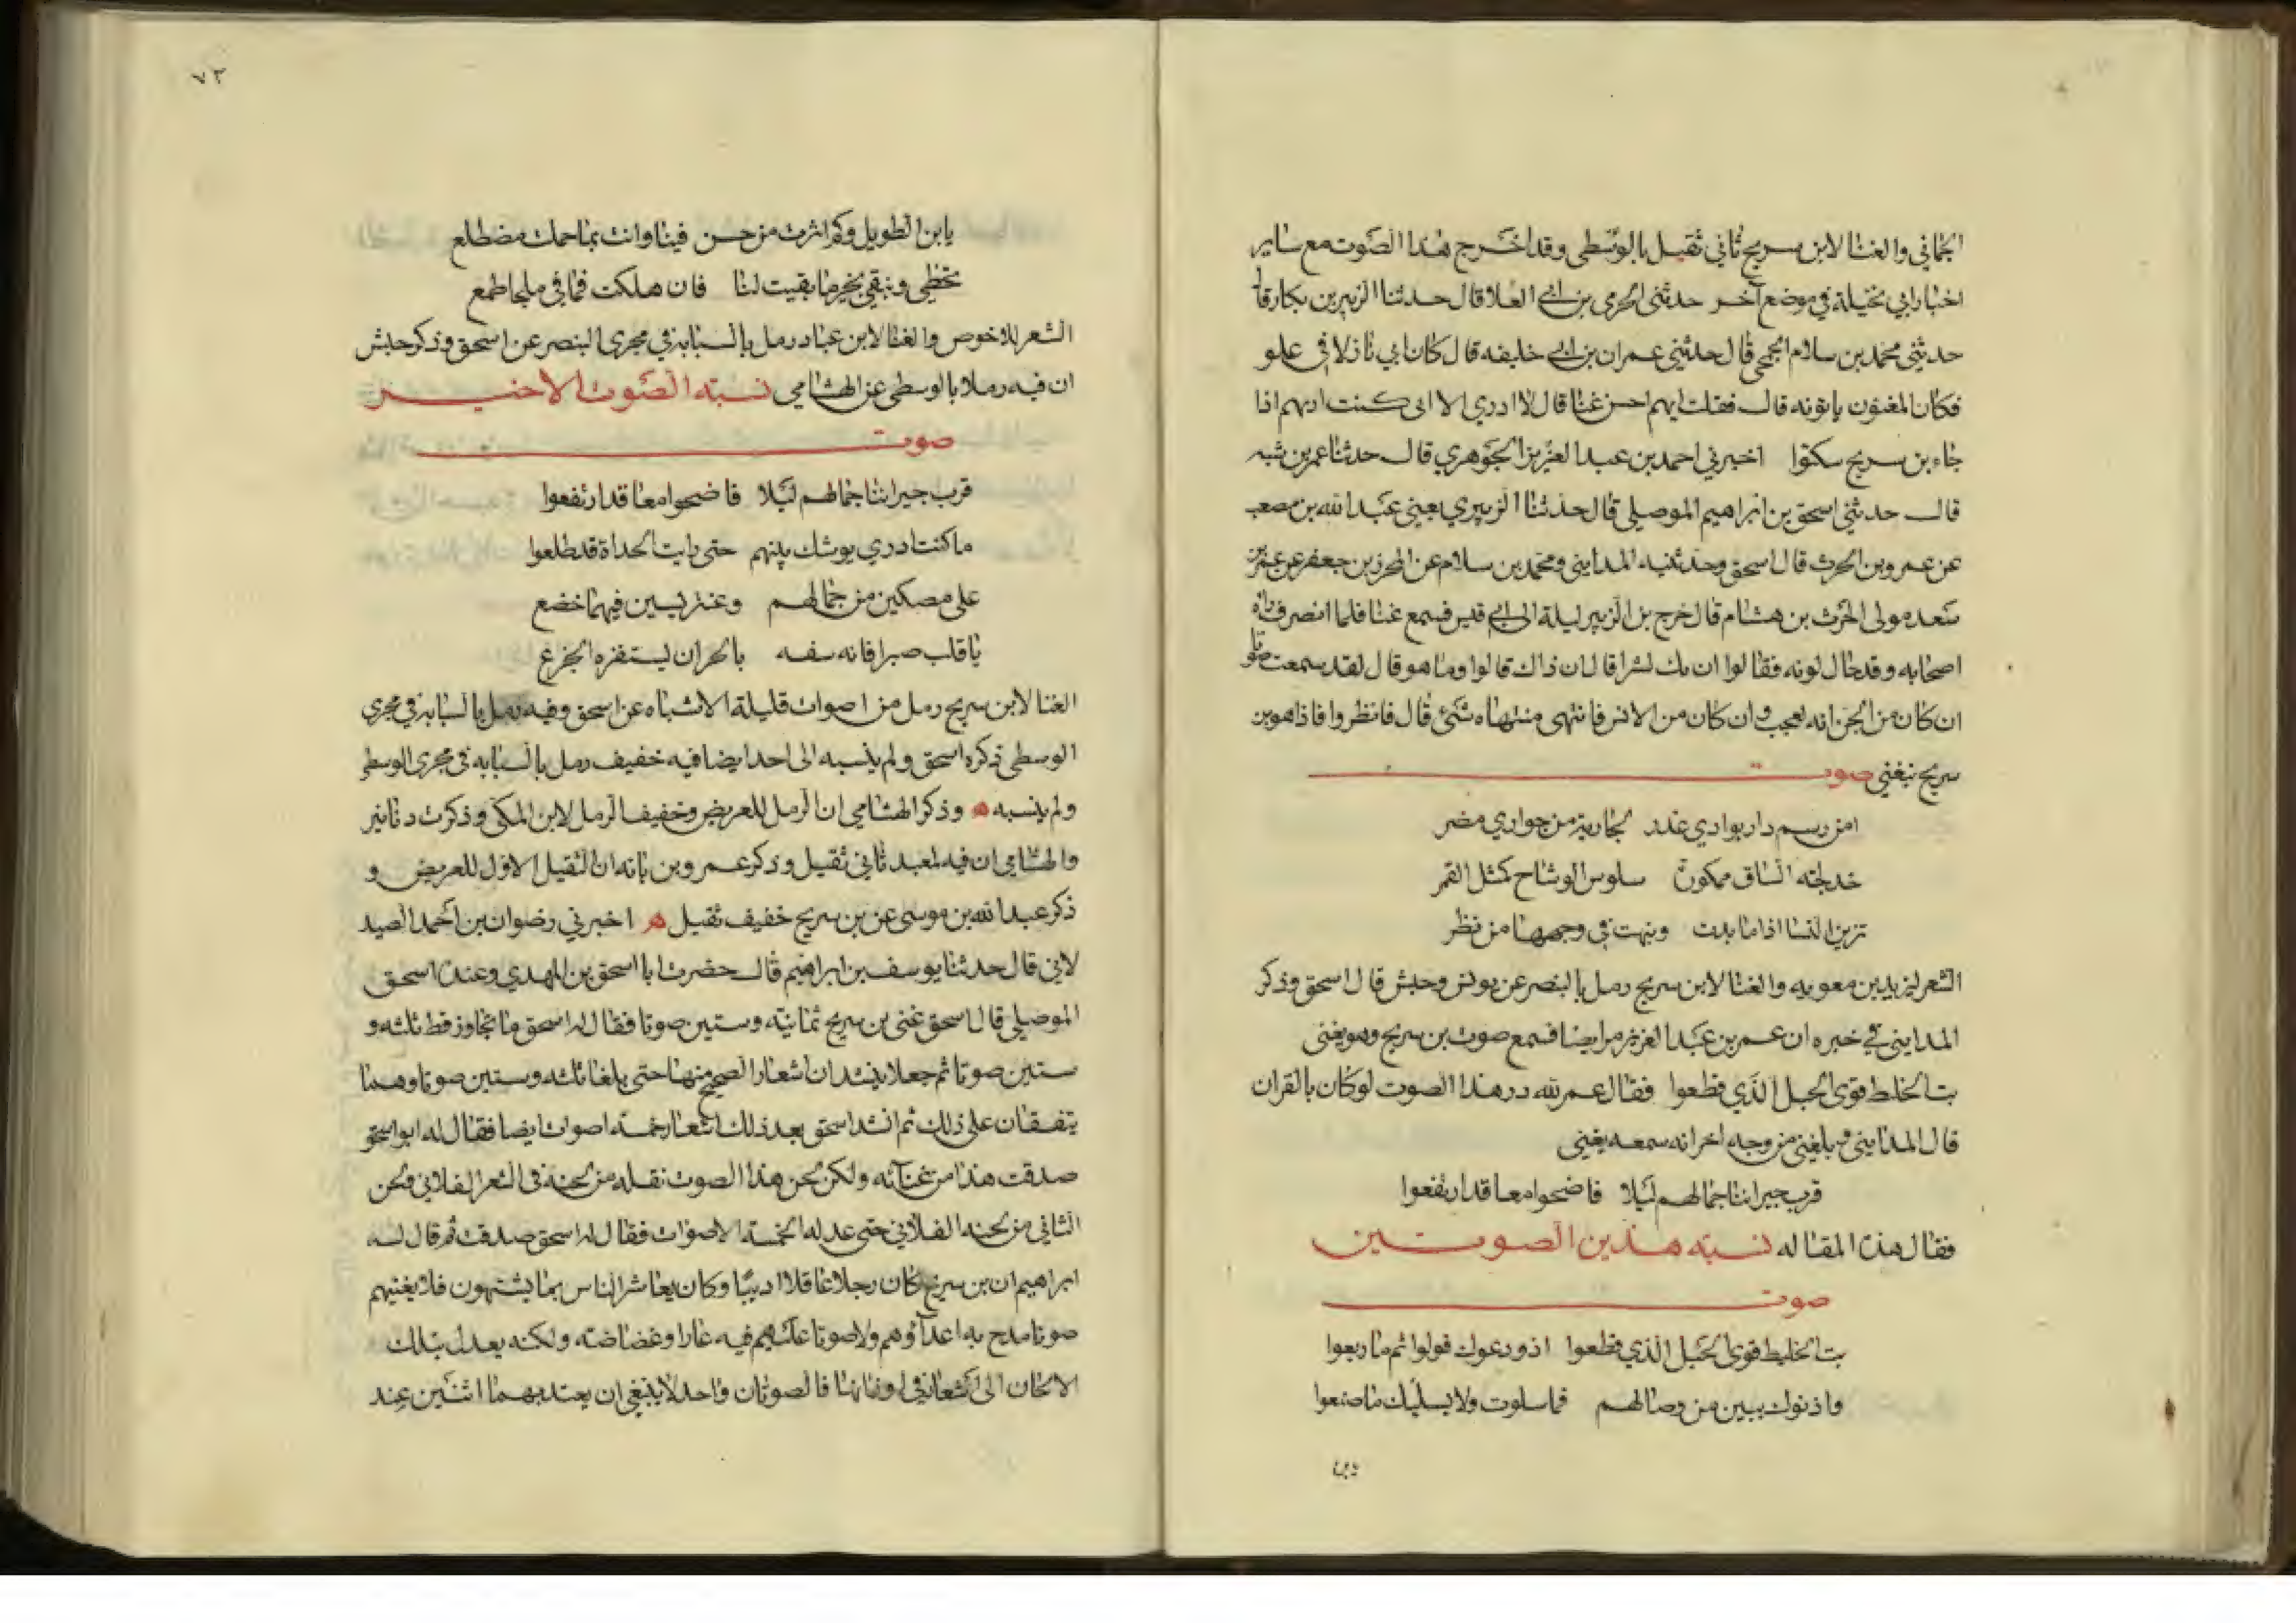 الحماني والغنا لابن سريج ثاني ثقيل بالوسطى وقد اخرج هذا الصوت مع ساير
اخبار ابي نخيلة في موضع آخر حدثني الحرمي بن ابي العلا قال حدثنا الزبير بن بكار قال
حدثني محمد بن سلام الجمحي قال حدثني عمران بن ابي خليفه قال كان ابي نازلا في علو
فكان المغنون ياتونه قال فقلت ايهم احسن غنا قال لا ادري الا اني كنت اراهم اذا
جاء بن سريج سكتوا اخبرني احمد بن عبد العزيز الجوهري قال حدثنا عمر بن شبه
قال حدثني اسحق بن ابراهيم الموصلي قال حدثنا الزبيري يعني عبد الله بن مصعب
عن عمرو بن الحرث قال اسحق وحدثنيه المدايني ومحمد بن سلام عن المحرز بن جعفر عن عمر بن
سعد مولى الحرث بن هشام قال خرج بن الزبير ليلة الى ابي قبيس فسمع غنا فلما انصرف راه
اصحابه وقد حال لونه فقالوا ان بك لشرا قال ان ذاك قالوا وما هو قال لقد سمعت صوتا
ان كان من الجن انه لعجب وان كان من الانس فما انتهى منتهاه شئ قال فانظروا فاذا هو بن
سريج يغني صوت
امن رسم دار بوادي غدر لجارية من جواري مضر
خدلجة الساق ممكورة سلوس الوشاح كمثل القمر
تزين النسا اذا ما بدت ويبهت في وجهها من نظر
الشعر ليزيد بن معويه والغنا لابن سريج رمل بالبنصر عن يونس وحبش قال اسحق وذكر
المدايني في خبره ان عمر بن عبد العزيز مر ايضا فسمع صوت بن سريج وهو يغني
بت الخليط قوى الحبل الذي قطعوا فقال عمر لله در هذا الصوت لو كان بالقران
قال المدايني وبلغني من وجه اخر انه سمعه يغني
قرب جيراننا جمالهم ليلا فاضحوا معا قد ارتفعوا
فقال هذه المقاله نسبة هذين الصوتين
صوت
بت الخليط قوى الحبل الذي قطعوا اذ ودعوك فولوا ثم ما ربعوا
واذنوك ببين من وصالهم فما سلوت ولا يسليك ما صنعوا
يابن
٧٣
يابن الطويل وكم اثرت من حسن فينا وانت بما حملت مضطلع
نحظى ونبقى بخير ما بقيت لنا فان هلكت فما في ملجا طمع
الشعر للاحوص والغنا لابن عباد رمل بالسبابة في مجرى البنصر عن اسحق وذكر حبش
ان فيه رملا بالوسطى عن الهشامي نسبة الصوت الاخير
صوت
قرب جيراننا جمالهم ليلا فاضحوا معا قد ارتفعوا
ما كنت ادري بوشك بينهم حتى رايت الحداة قد طلعوا
على مصكين من جمالهم وعنتريسين فيهما خضع
يا قلب صبرا فانه سفه بالحر ان يستفزه الجزع
الغنا لابن سريج رمل من اصوات قليلة الاشباه عن اسحق وفيه رمل بالسبابة في مجرى
الوسطى ذكره اسحق ولم ينسبه الى احد ايضا فيه خفيف رمل بالسبابه في مجرى الوسطى
ولم ينسبه ه وذكر الهشامي ان الرمل للغريض وخفيف الرمل لابن المكي وذكرت دنانير
والهشامي ان فيه لمعبد ثاني ثقيل وذكر عمرو بن بانه ان الثقيل الاول للغريض و
ذكر عبد الله بن موسى عن بن سريج خفيف ثقيل ه اخبرني رضوان بن احمد الصيد
لاني قال حدثنا يوسف بن ابراهيم قال حضرت ابا اسحق بن المهدي وعنده اسحق
الموصلي قال اسحق غنى بن سريج ثمانية وستين صوتا فقال له اسحق ما تجاوز قط ثلثه و
ستين صوتا ثم جعلا ينشدان اشعار الصحيح منها حتى بلغا ثلثه وستين صوتا وهما
يتفقان على ذلك ثم انشد اسحق بعد ذلك اشعار خمسة اصوات ايضا فقال له ابو اسحق
صدقت هذا من غنائه ولكن لحن هذا الصوت نقله من لحنه في الشعر الفلاني ولحن
الثاني من لحنه الفلاني حتى عد له الخمسة الاصوات فقال له اسحق صدقت ثم قال له
ابراهيم ان بن سريج كان رجلا عاقلا اديبا وكان يعاشر الناس بما يشتهون فلا يغنيهم
صوتا مدح به اعداؤهم ولا صوتا عليهم فيه عارا وغضاضة ولكنه يعدل بتلك
الالحان الى اشعار في اوزانها فالصوتان واحد لا ينبغي ان يعتد بهما اثنين عند